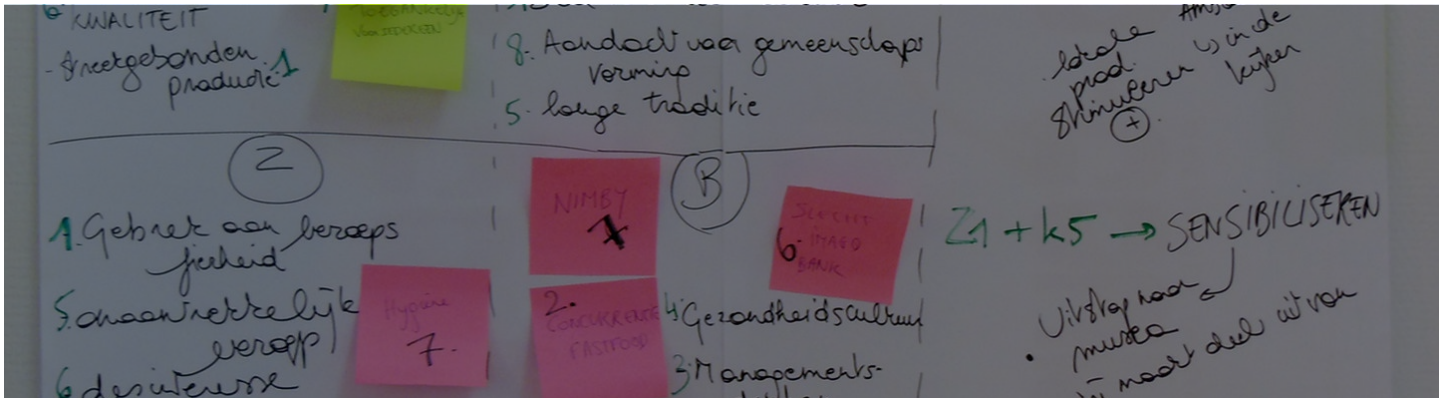 KWALITEIT
- Streekgebonden
productie 1
VOORBEDEKKEN
8. Aandacht voor gemeenschaps
vorming
5. lange traditie
lokale
prod.
stimuleren
in de
kijker
+
Z
1. Gebrek aan beroeps
fierheid
5. onaantrekkelijk
beroep
6. desinteresse
Hygiëne
7.
B
NIMBY
1
2.
CONCURRENTIE
FASTFOOD
SLECHT
6. IMAGO
BANK
4. Gezondheidscultuur
3. Managements-
Z1 + k5 → SENSIBILISEREN
• Uitstap naar
musea
maakt deel uit van